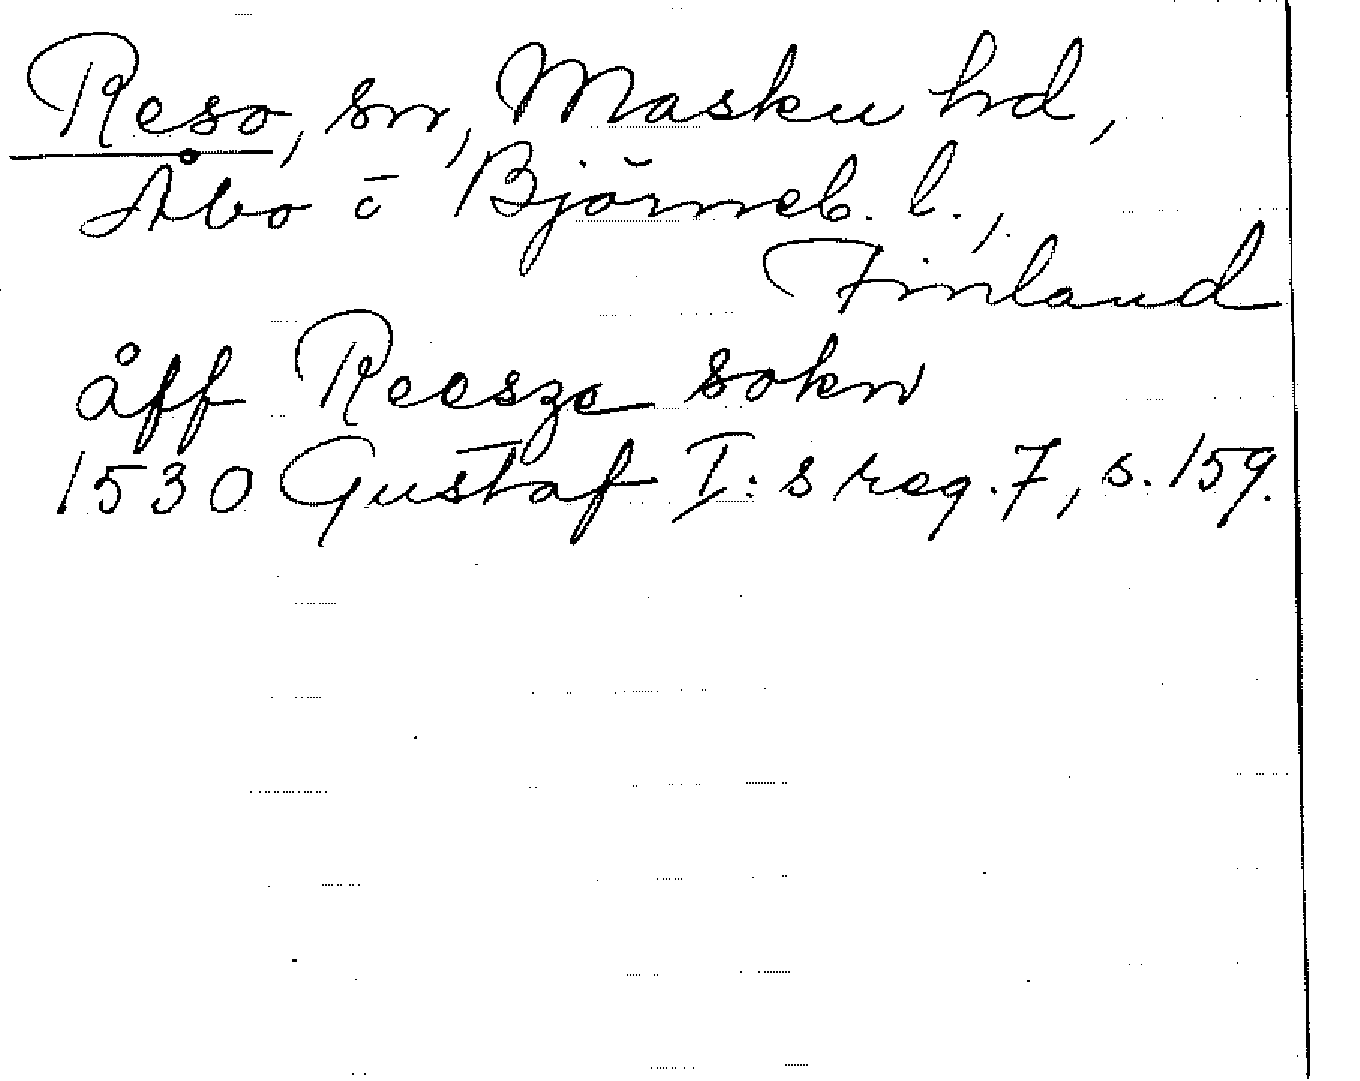 Reso, sn, Masku hd,
Åbo o Björneb. l.,
Finland
åff Reesze sokn
1530 Gustaf I:s reg. 7, s. 159.